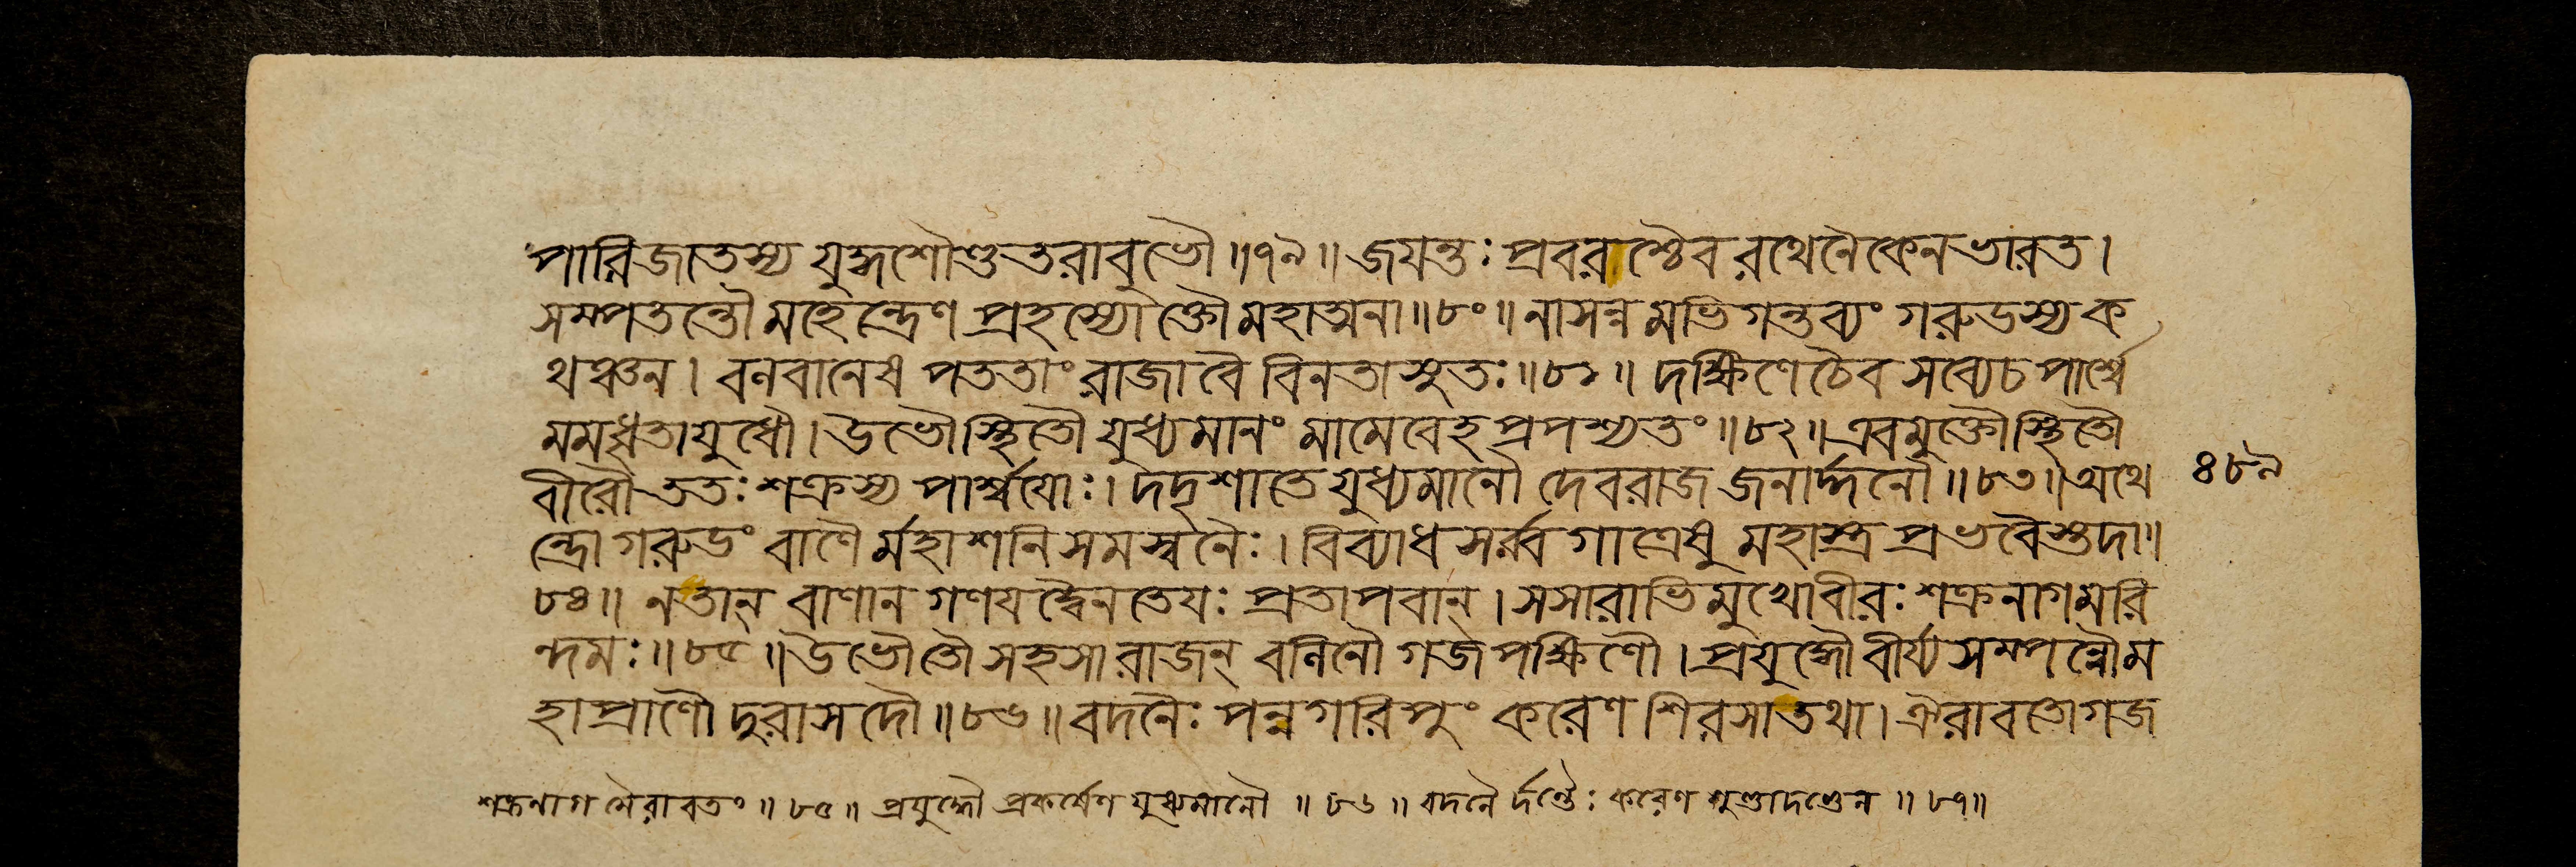 পারিজাতস্য যুদ্ধশৌণ্ডতরাবুভৌ॥৭৯॥ জযন্তঃ প্রবরশ্চৈব রথেনৈকেন ভারত।
সম্পতন্তৌ মহেন্দ্রেণ প্রহস্যোক্তৌ মহাত্মনা॥৮০॥ নাসন্নমভিগন্তব্যং গরুডস্য ক
থঞ্চন। বলবানেষ পততাং রাজা বৈ বিনতাসুতঃ॥৮১॥ দক্ষিণে চৈব সব্যেচ পার্শ্বে
মমধৃতাযুধৌ। উভৌস্থিতৌ যুধ্যমানং মামেবেহ প্রপশ্যতং॥৮২॥ এবমুক্তৌস্থিতৌ
বীরৌ ততঃ শক্রস্য পার্শ্বযোঃ। দদৃশাতে যুধ্যমানৌ দেবরাজ জনার্দ্দনৌ॥৮৩॥ অথে
৪৮৯
ন্দ্রো গরুডং বাণৈর্মহাশনিসমস্বনৈঃ। বিব্যাধ সর্ব্বগাত্রেষু মহাস্ত্র প্রভবৈস্তদা॥
৮৪॥ নতান্ বাণান গণযদ্বৈনতেযঃ প্রতাপবান্। সসারাভিমুখোবীরঃ শক্রনাগমরি
ন্দমঃ॥৮৫॥ উভৌতৌ সহসা রাজন্ বলিনৌ গজপক্ষিণৌ। প্রযুদ্ধৌ বীর্য্যসম্পন্নৌ ম
হাপ্রাণৌ দুরাসদৌ॥৮৬॥ বদনৈঃ পন্নগরিপুং করেণ শিরসা তথা। ঐরাবতোগজ
শক্রনাগমৈরাবতং॥৮৫॥ প্রযুদ্ধৌ প্রকর্ষেণ যুধ্যমানৌ॥৮৬॥ বদনৈর্দণ্ডৈঃ করেণ শুণ্ডাদণ্ডেন॥৮৭॥